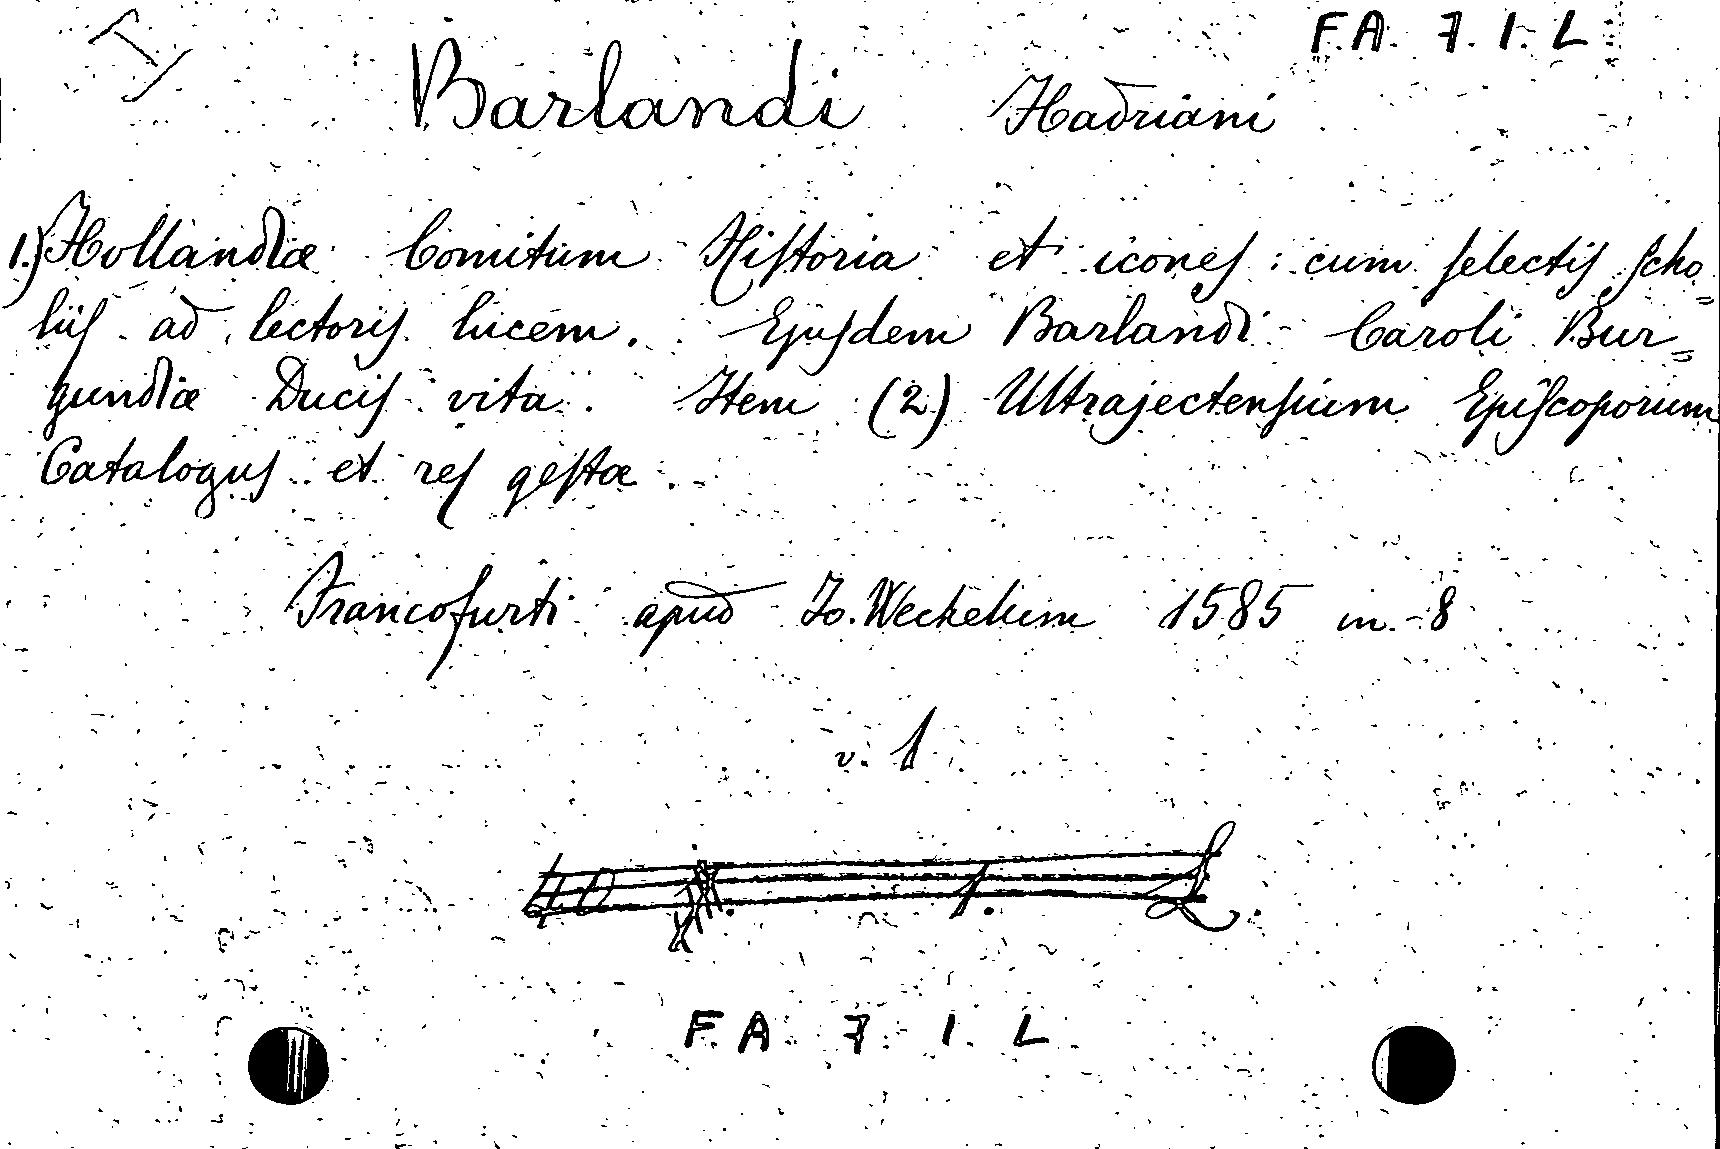 F. A. 7. I. L
Barlandi Hadriani
1.) Hollandiæ Comitum Hiſtoria et iconeſ: cum ſelectiſ ſcho=
liiſ ad lectoriſ lucem. Ejuſdem Barlandi Caroli Bur=
gundiæ Duciſ vita. Item (2) Ultrajectenſium Epiſcoporum
Cataloguſ et reſ geſtæ.
Francofurti apud Jo. Weckelum 1585 in-8
v. 1
F. A. 7 I L